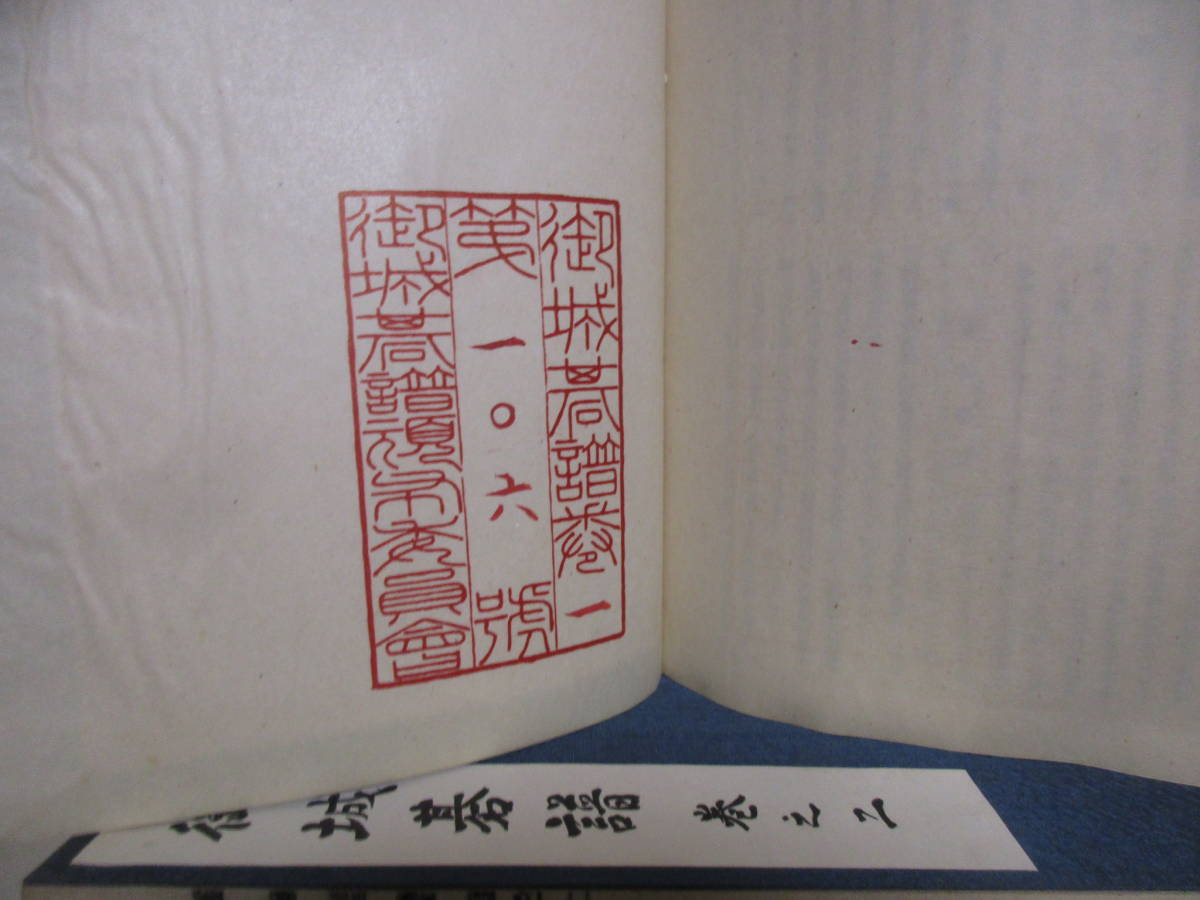 御城碁譜卷一
第一〇六號
御城碁譜頒布委員會
御城碁譜 巻之二